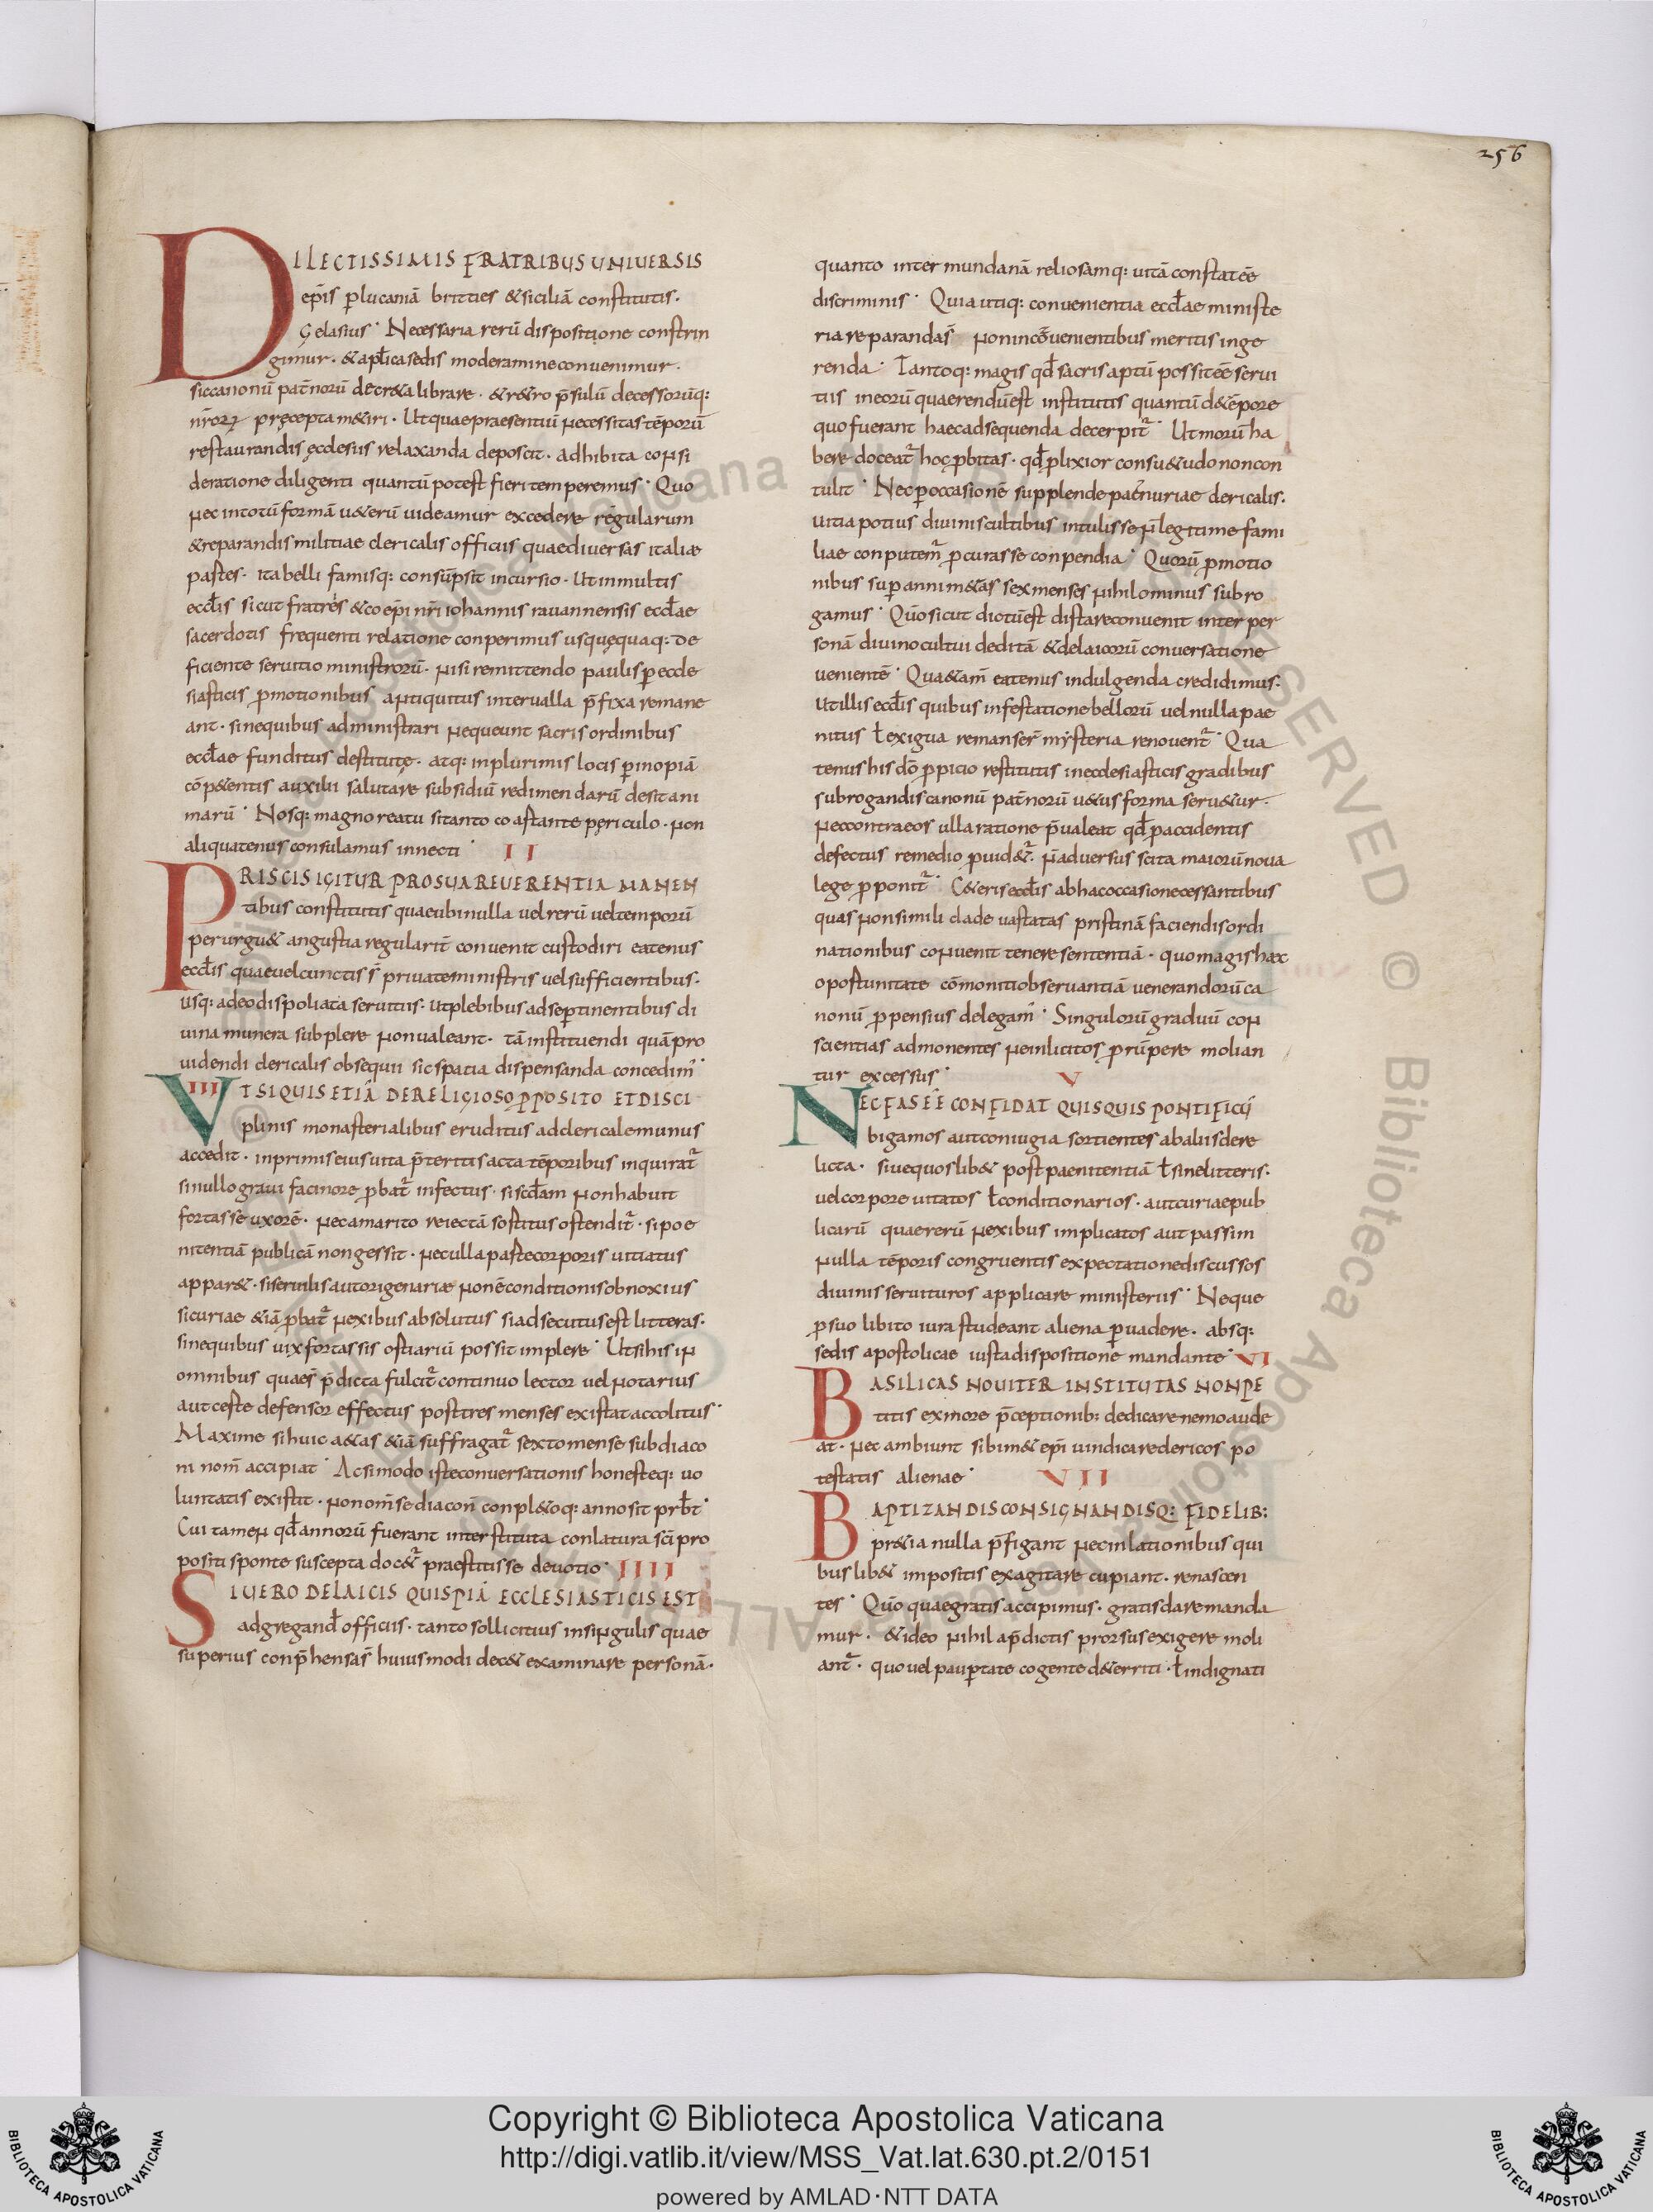 256
DILECTISSIMIS FRATRIBUS UNIVERSIS
ep̄is p̱ lucaniā britties & siciliā constitutis·
Gelasius· Necessaria rerū dispositione constrin
gimur· & apl̄ica sedis moderamine convenimur·
sic canonū pat̄norū decr&a librare· & r&ro p̄sulū decessorūq:
nr̄orꝝ pręcepta m&iri· Ut quae praesentiū necessitas tēporū
restaurandis ęcclesiis relaxanda deposcit· adhibita consi
deratione diligenti quantū potest fieri temperemus· Quo
nec in totū formā u&erū uideamur excedere regularum
& reparandis militiae clericalis officiis quae diversas italiae
partes· ita belli famisq: consūpsit incursio· Ut in multis
eccl̄is sicut fratres & coep̄i nr̄i iohannis ravannensis eccl̄ae
sacerdotis frequenti relatione conperimus usquęquaq: de
ficiente servitio ministrorū· nisi remittendo paulisꝑ eccle
siasticis ꝓmotionibus antiquitus intervalla p̄fixa remane
ant· sine quibus administrari nequeunt sacris ordinibus
eccl̄ae funditus destitutę· atq: in plurimis locis ꝑ inopiā
cōp&entis auxilii salutare subsidiū redimendarū desit ani
marū· Nosq: magno reatu si tanto coastante periculo· non
aliquatenus consulamus innecti· II
PRISCIS IGITUR PRO SUA REVERENTIA MANEN
tibus constitutis quae ubi nulla vel rerū vel temporū
perurgu& angustia regularit̄ convenit custodiri eatenus
eccl̄is quae vel cunctis s̄ privatae ministris vel sufficientibus·
usq: adeo dispoliata servitiis· ut plebibus ad se ꝑtinentibus di
vina munera subplere non valeant· tā instituendi quā pro
videndi clericalis obsequii sic spatia dispensanda concedim̄·
III
UT SI QUIS ETIĀ DE RELIGIOSO PPOSITO ET DISCI
plinis monasterialibus eruditus ad clericale munus
accedit· inprimis eius vita p̄teritis acta tēporibus inquirat᷑
si nullo gravi facinore ꝓbat᷑ infectus· si scd̄am non habuit
fortasse uxorē· nec a marito reiectā sortitus ostendit᷑· si poe
nitentiā publicā non gessit· nec ulla parte corporis vitiatus
appar&· si servilis aut origenariae non ē conditionis obnoxius
si curiae &iā ꝓbat᷑ nexibus absolutus si adsecutus est litteras·
sine quibus vix fortassis ostiariū possit implere· Ut si his in
omnibus quae s̄ p̄dicta fulcit᷑ continuo lector vel notarius
aut certe defensor effectus post tres menses existat accolitus·
Maxime si huic a&as &iā suffragat᷑ sexto mense subdiaco
ni nom̄ accipiat· Ac si modo iste conversationis honesteq: vo
luntatis existit· nono m̄se diacon̄ conpl&oq: anno sit prb̄t·
Cui tamen qd̄ annorū fuerant interstituta conlatura sc̄i pro
positi sponte suscepta doc&᷑ praestitisse devotio· IIII
SI VERO DE LAICIS QUISPIĀ ECCLESIASTICIS EST
adgregand̄ officiis· tanto sollicitius in singulis quae
superius conp̄hensa s̄ huiusmodi dec& examinare personā·
quanto inter mundanā reliosamq: vitā constat ēe
discriminis· Quia utiq: convenientia eccl̄ae ministe
ria reparanda s̄ non incōvenientibus meritis inge
renda· Tantoq: magis qd̄ sacris aptū possit ēe servi
tiis in eorū quaerendū est institutis quantū d& ēpore
quo fuerant haec adsequenda decerpit᷑· Ut morū ha
bere doceat᷑ hoc ꝓbitas· qd̄ ꝓlixior consu&udo non con
tulit· Nec ꝑ occasionē supplende pat̄nuriae clericalis·
vitia potius divinis cultibus intulisse n̄ legitime fami
liae conputem᷑ ꝓcurasse conpendia· Quorū ꝓmotio
nibus suꝑ anni m&as sex menses nihilominus subro
gamus· Qūo sicut dictū est distare convenit inter per
sonā divino cultui deditā & de laicorū conversatione
venientē· Qua&am̄ eatenus indulgenda credidimus·
Ut illis eccl̄is quibus infestatione bellorū vel nulla pae
nitus ł exigua remanser̄ mysteria renovent᷑· Qua
tenus his dō ꝓpicio restitutis in ecclesiasticis gradibus
subrogandis canonū pat̄norū u&us forma serv&ur·
nec contra eos ulla ratione p̄valeat qd̄ ꝑ accidentis
defectus remedio ꝓvid&᷑· n̄ adversus scita maiorū nova
lege ꝓponit᷑· C&eris eccl̄is ab hac occasione cessantibus
quas non simili clade vastatas pristinā faciendis ordi
nationibus convenit tenere sententiā· quo magis hac
oportunitate cōmoniti observantiā venerandorū ca
nonū ꝓpensius delegam̄· Singulorū graduū con
scientias admonentes ne in licitos ꝓrūpere molian
tur excessus· V
NEC FAS ĒE CONFIDAT QUISQUIS PONTIFICŪ
bigamos aut coniugia sortientes ab aliis dere
licta· sive quos lib& post paenitentiā ł sine litteris·
vel corpore vitatos ł conditionarios· aut curiae pub
licarū quae rerū nexibus implicatos aut passim
nulla tēporis congruentis expectatione discussos
divinis servituros applicare ministeriis· Neque
ꝓ suo libito iura studeant aliena ꝑvadere· absq:
sedis apostolicae iusta dispositione mandante· VI
BASILICAS NOVITER INSTITUTAS NON PE
titis ex more p̄ceptionib: dedicare nemo aude
at· nec ambiunt sibim& ep̄i vindicare clericos po
testatis alienae· VII
BAPTIZANDIS CONSIGNANDISQ: FIDELIB:
pr&ia nulla p̄figant nec inlationibus qui
buslib& impositis exagitare cupiant· renascen
tes· Qūo quae gratis accipimus· gratis dare manda
mur· & ideo nihil a p̄dictis prorsus exigere moli
ant᷑· quo vel pauꝑtate cogente d&erriti· ł indignati
Copyright © Biblioteca Apostolica Vaticana
http://digi.vatlib.it/view/MSS_Vat.lat.630.pt.2/0151
powered by AMLAD·NTT DATA
BIBLIOTECA APOSTOLICA VATICANA
BIBLIOTECA APOSTOLICA VATICANA